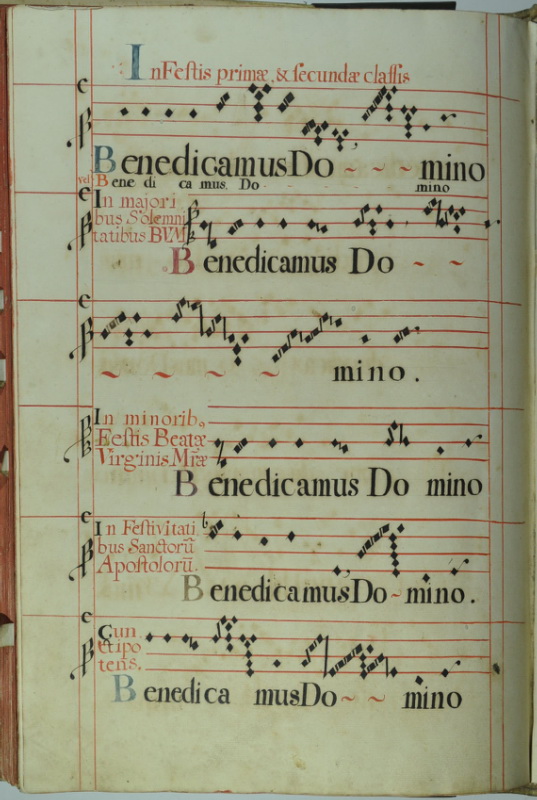 In Festis primæ, & secundæ classis
Benedicamus Do ~ ~ ~ mino
vel Bene di ca mus. Do mino
In majori
bus Solemni
tatibus BVM
Benedicamus Do ~ ~
~ ~ ~ ~ mino.
In minorib9
Festis Beatæ
Virginis Mriæ
Benedicamus Do mino
In Festivitati
bus Sanctorū
Apostolorū.
Benedicamus Do ~ mino.
Cun
ctipo
tens.
Benedica mus Do ~ ~ mino